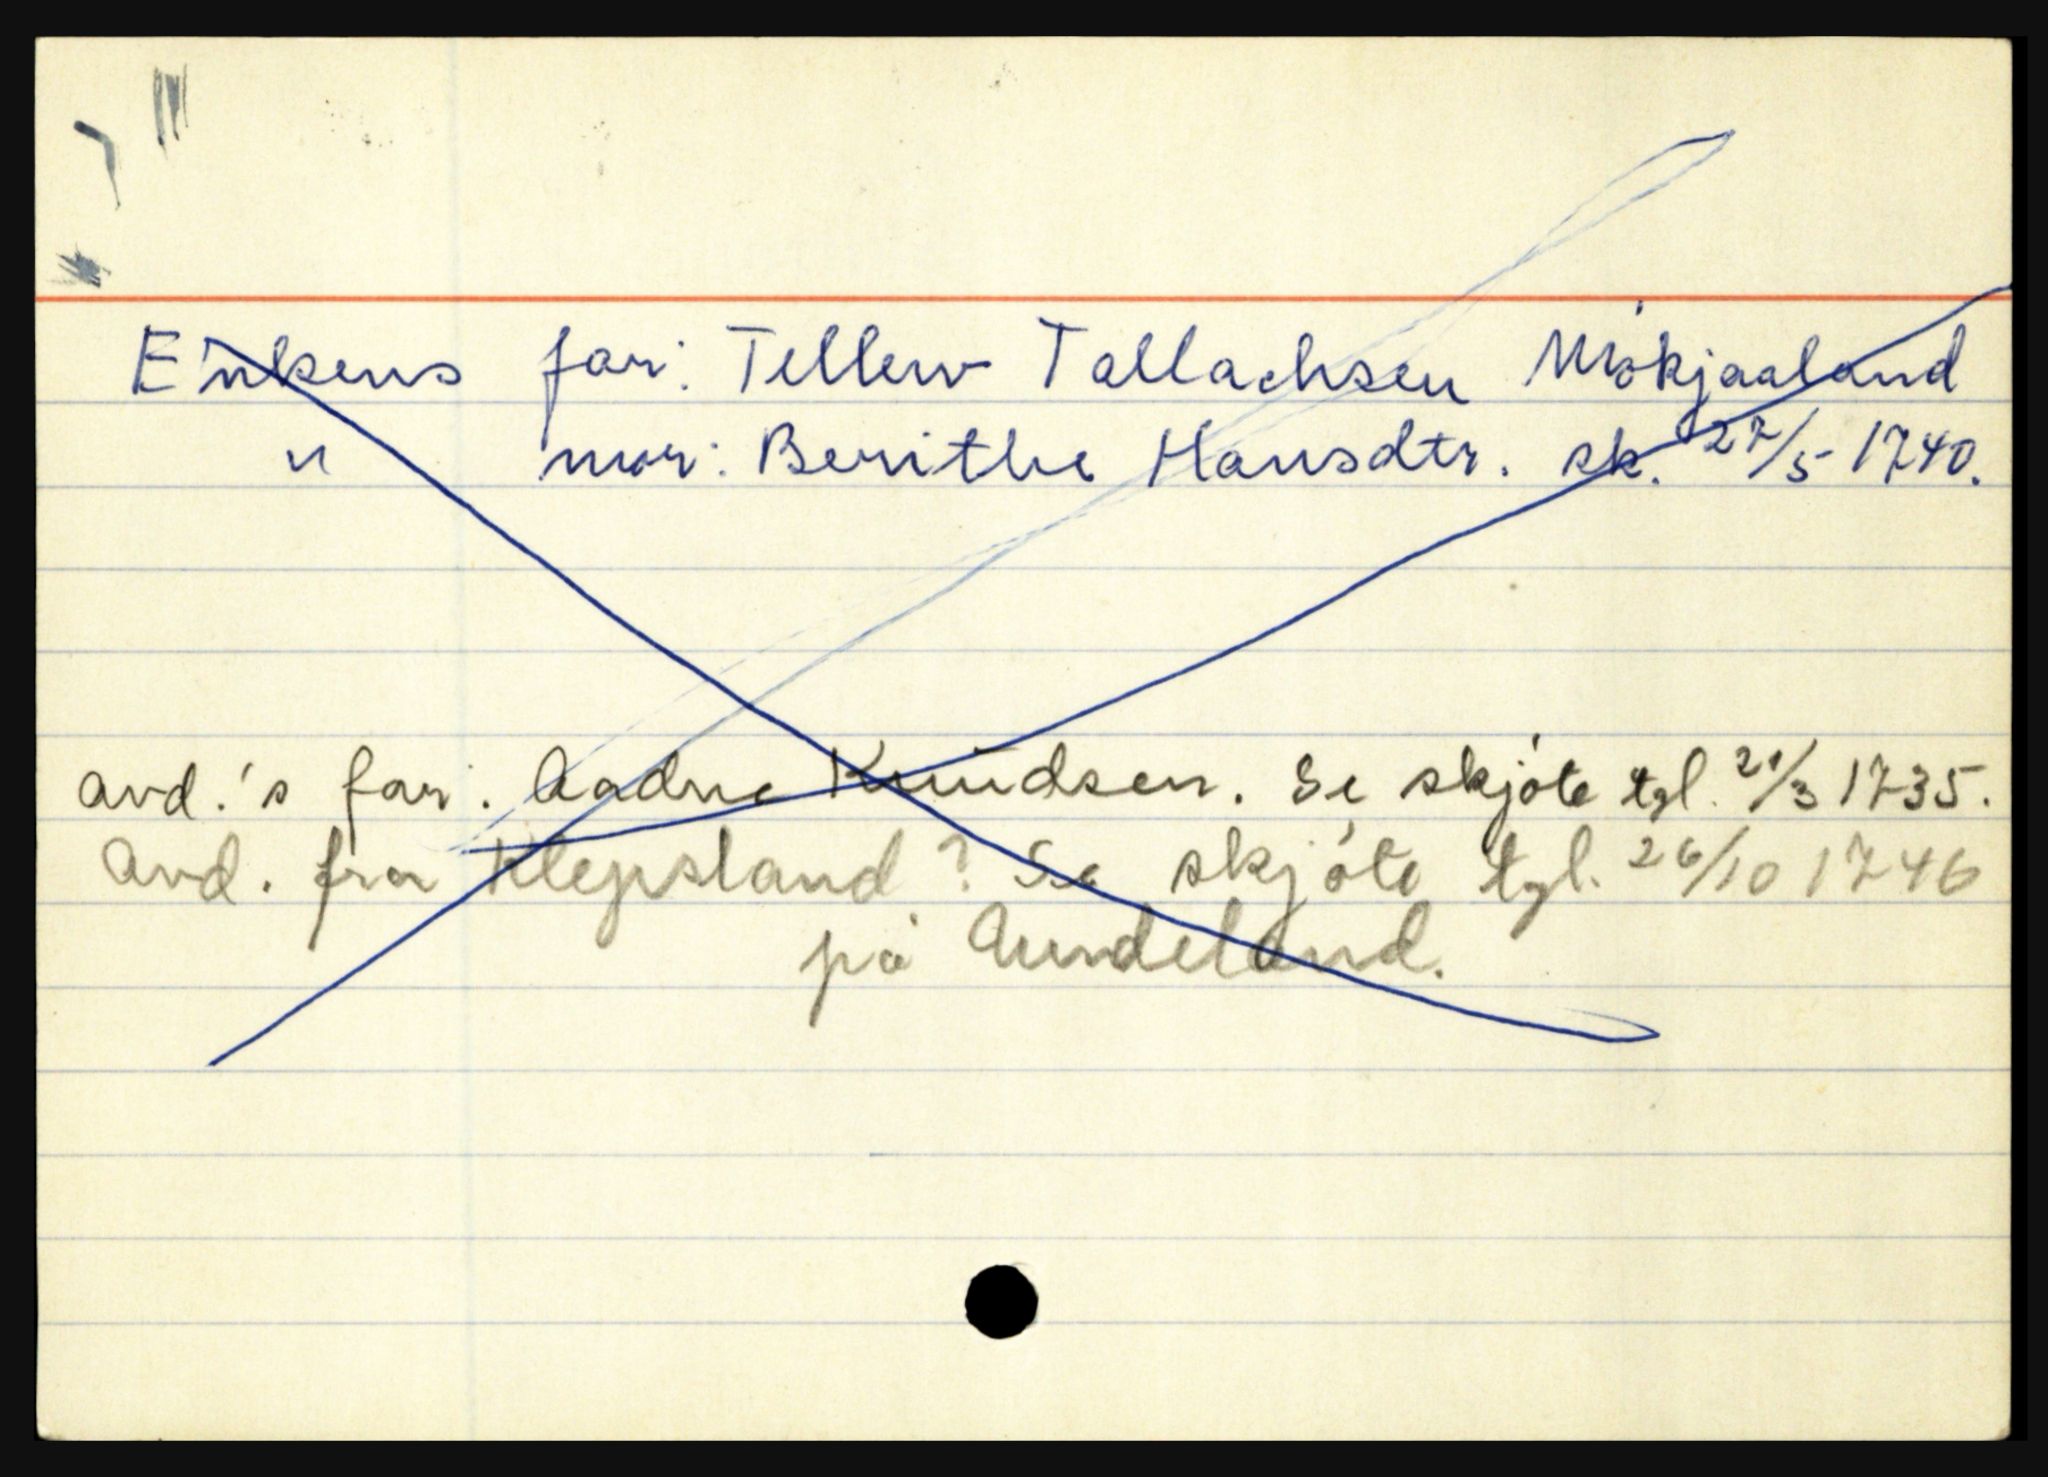 Enkens far: Tellew Tallachsen Mókjaaland
" mor: Berithe Hansdtr. sk. 27/5 1740.
avd.'s far: Aadne Knudsen. Se skjóte tgl. 21/3 1735.
Avd. fra Klepsland? Se skjóte tgl. 26/10 1746
på Aundeland.